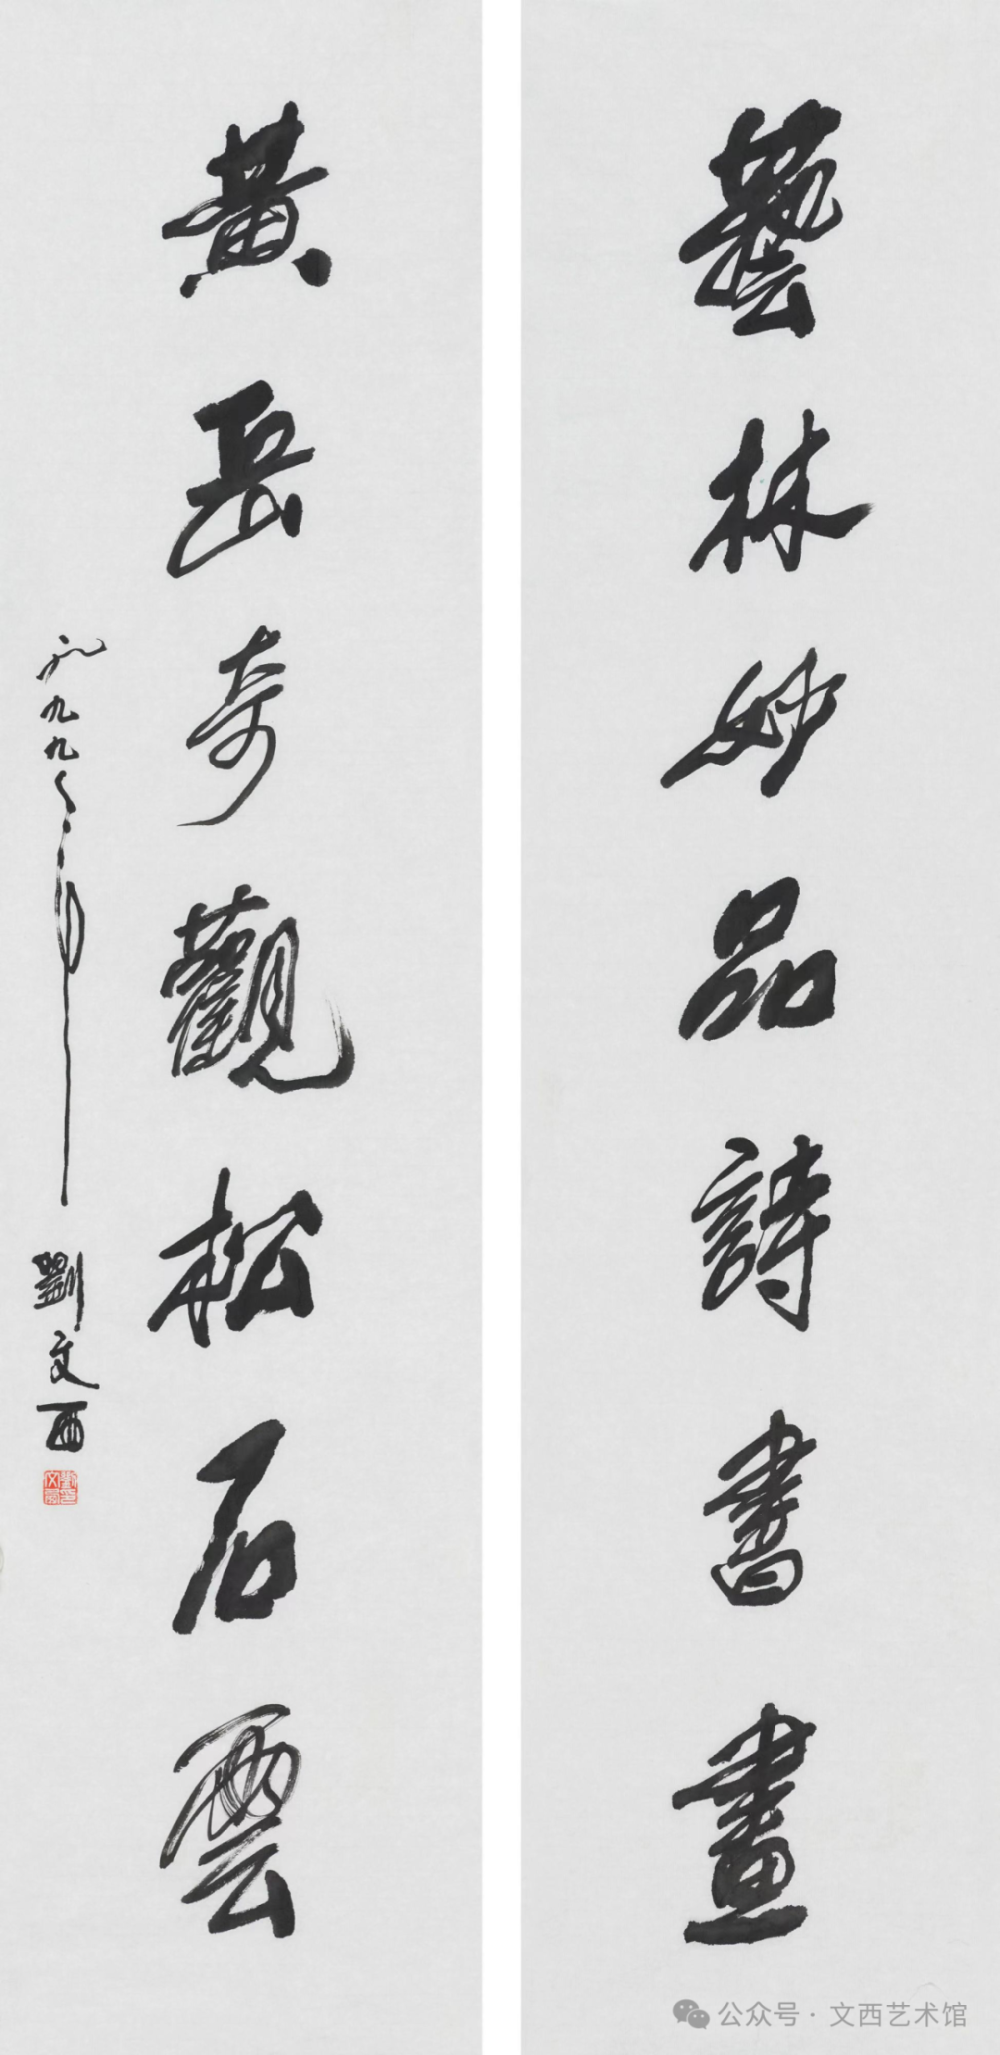 藝林妙品詩書畫
黃岳奇觀松石雲
一九九八年 劉文西
公众号·文西艺术馆